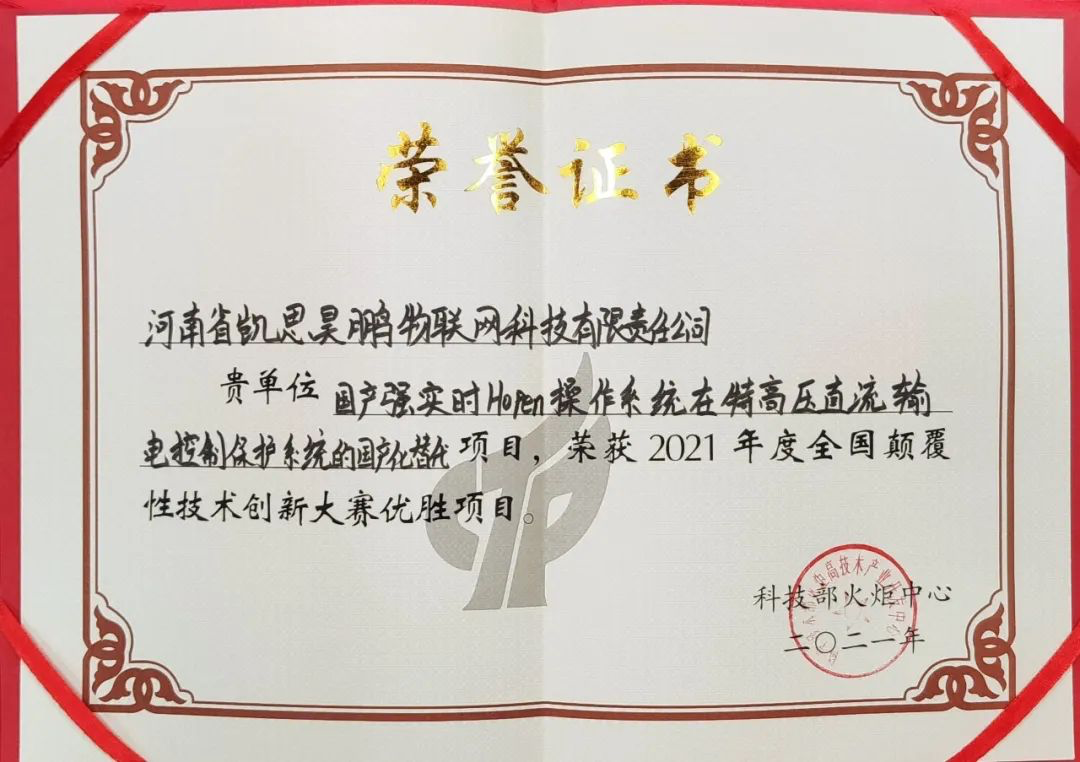 荣誉证书
河南省凯思昊鹏物联网科技有限责任公司
贵单位 国产强实时Hopen操作系统在特高压直流输
电控制保护系统的国产化替代项目，荣获 2021 年度全国颠覆
性技术创新大赛优胜项目。
科技部火炬中心
二〇二一年
高技术产业